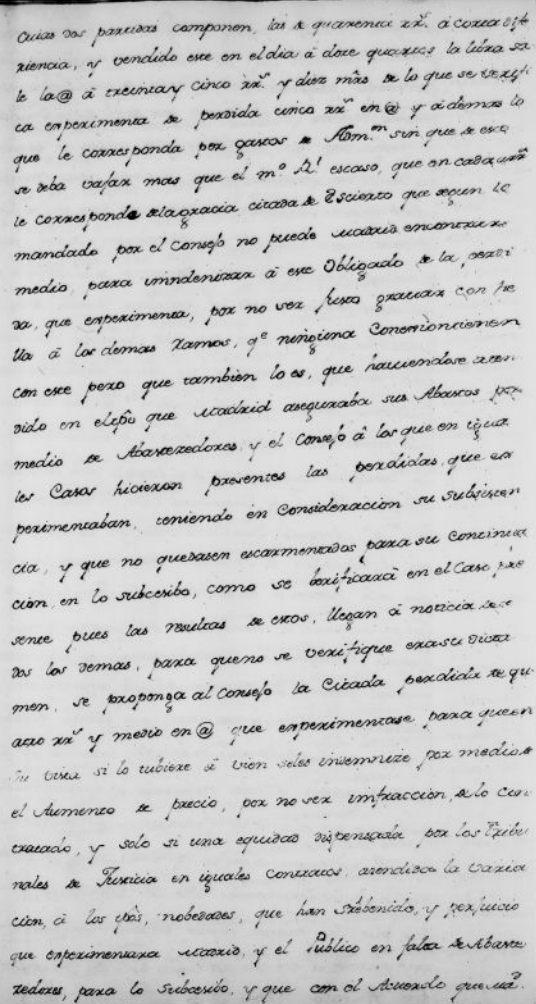 cuias dos partidas componen, las de quarenta rr.^s á corta dife
riencia, y vendido este en el dia á doce quartos la libra sa
le la @ á treinta y cinco rr.^s y diez mrs de lo que se verifi
ca experimenta de perdida cinco rr.^s en @ y ademas lo
que le corresponda por gastos de Adm.^on sin que de esto
se deba vajar mas que el m.^o R.^l escaso, que en cada
le corresponde de la gracia citada de Escierto que segun lo
mandado por el Consejo no puede Madrid encontrar
medio, para inmdenizar á este Obligado de la perdi
da, que experimenta, por no ser justo graciar con
á los demas Ramos, q.^e ningúna Conemioncienen
con este pero que tambien lo es, que haciendose aten
dido en el tpô que Madrid aseguraba sus Abastos por
medio de Abastezedores, y el Consejo á los que en igua
les Casos hicieron presentes las perdidas, que ex
perimentaban, teniendo en Consideracion su subsisten
cia, y que no quedasen escarmentados para su continua
cion, en lo subcesibo, como se berificará en el Caso pre
sente pues las resultas de estos, llegan á noticia de to
dos los demas, para que no se verifique era su dicta
men, se proponga al Consejo la Citada perdida de qu
atro rr.^s y medio en @ que experimentase para que en
su vista si lo tubiere á vien seles indemnize por medio de
el Aumento de precio, por no ser imfraccion, de lo con
tratado, y solo si una equidad dispensada por los Tribu
nales de Justicia en iguales contratos, atendida la varia
cion, á los tpôs, nobedades, que han Srebenido, y perjuicio
que experimentara Madrid, y el Público en falta de Abaste
zedores, para lo Subcesibo, y que con el Acuerdo que